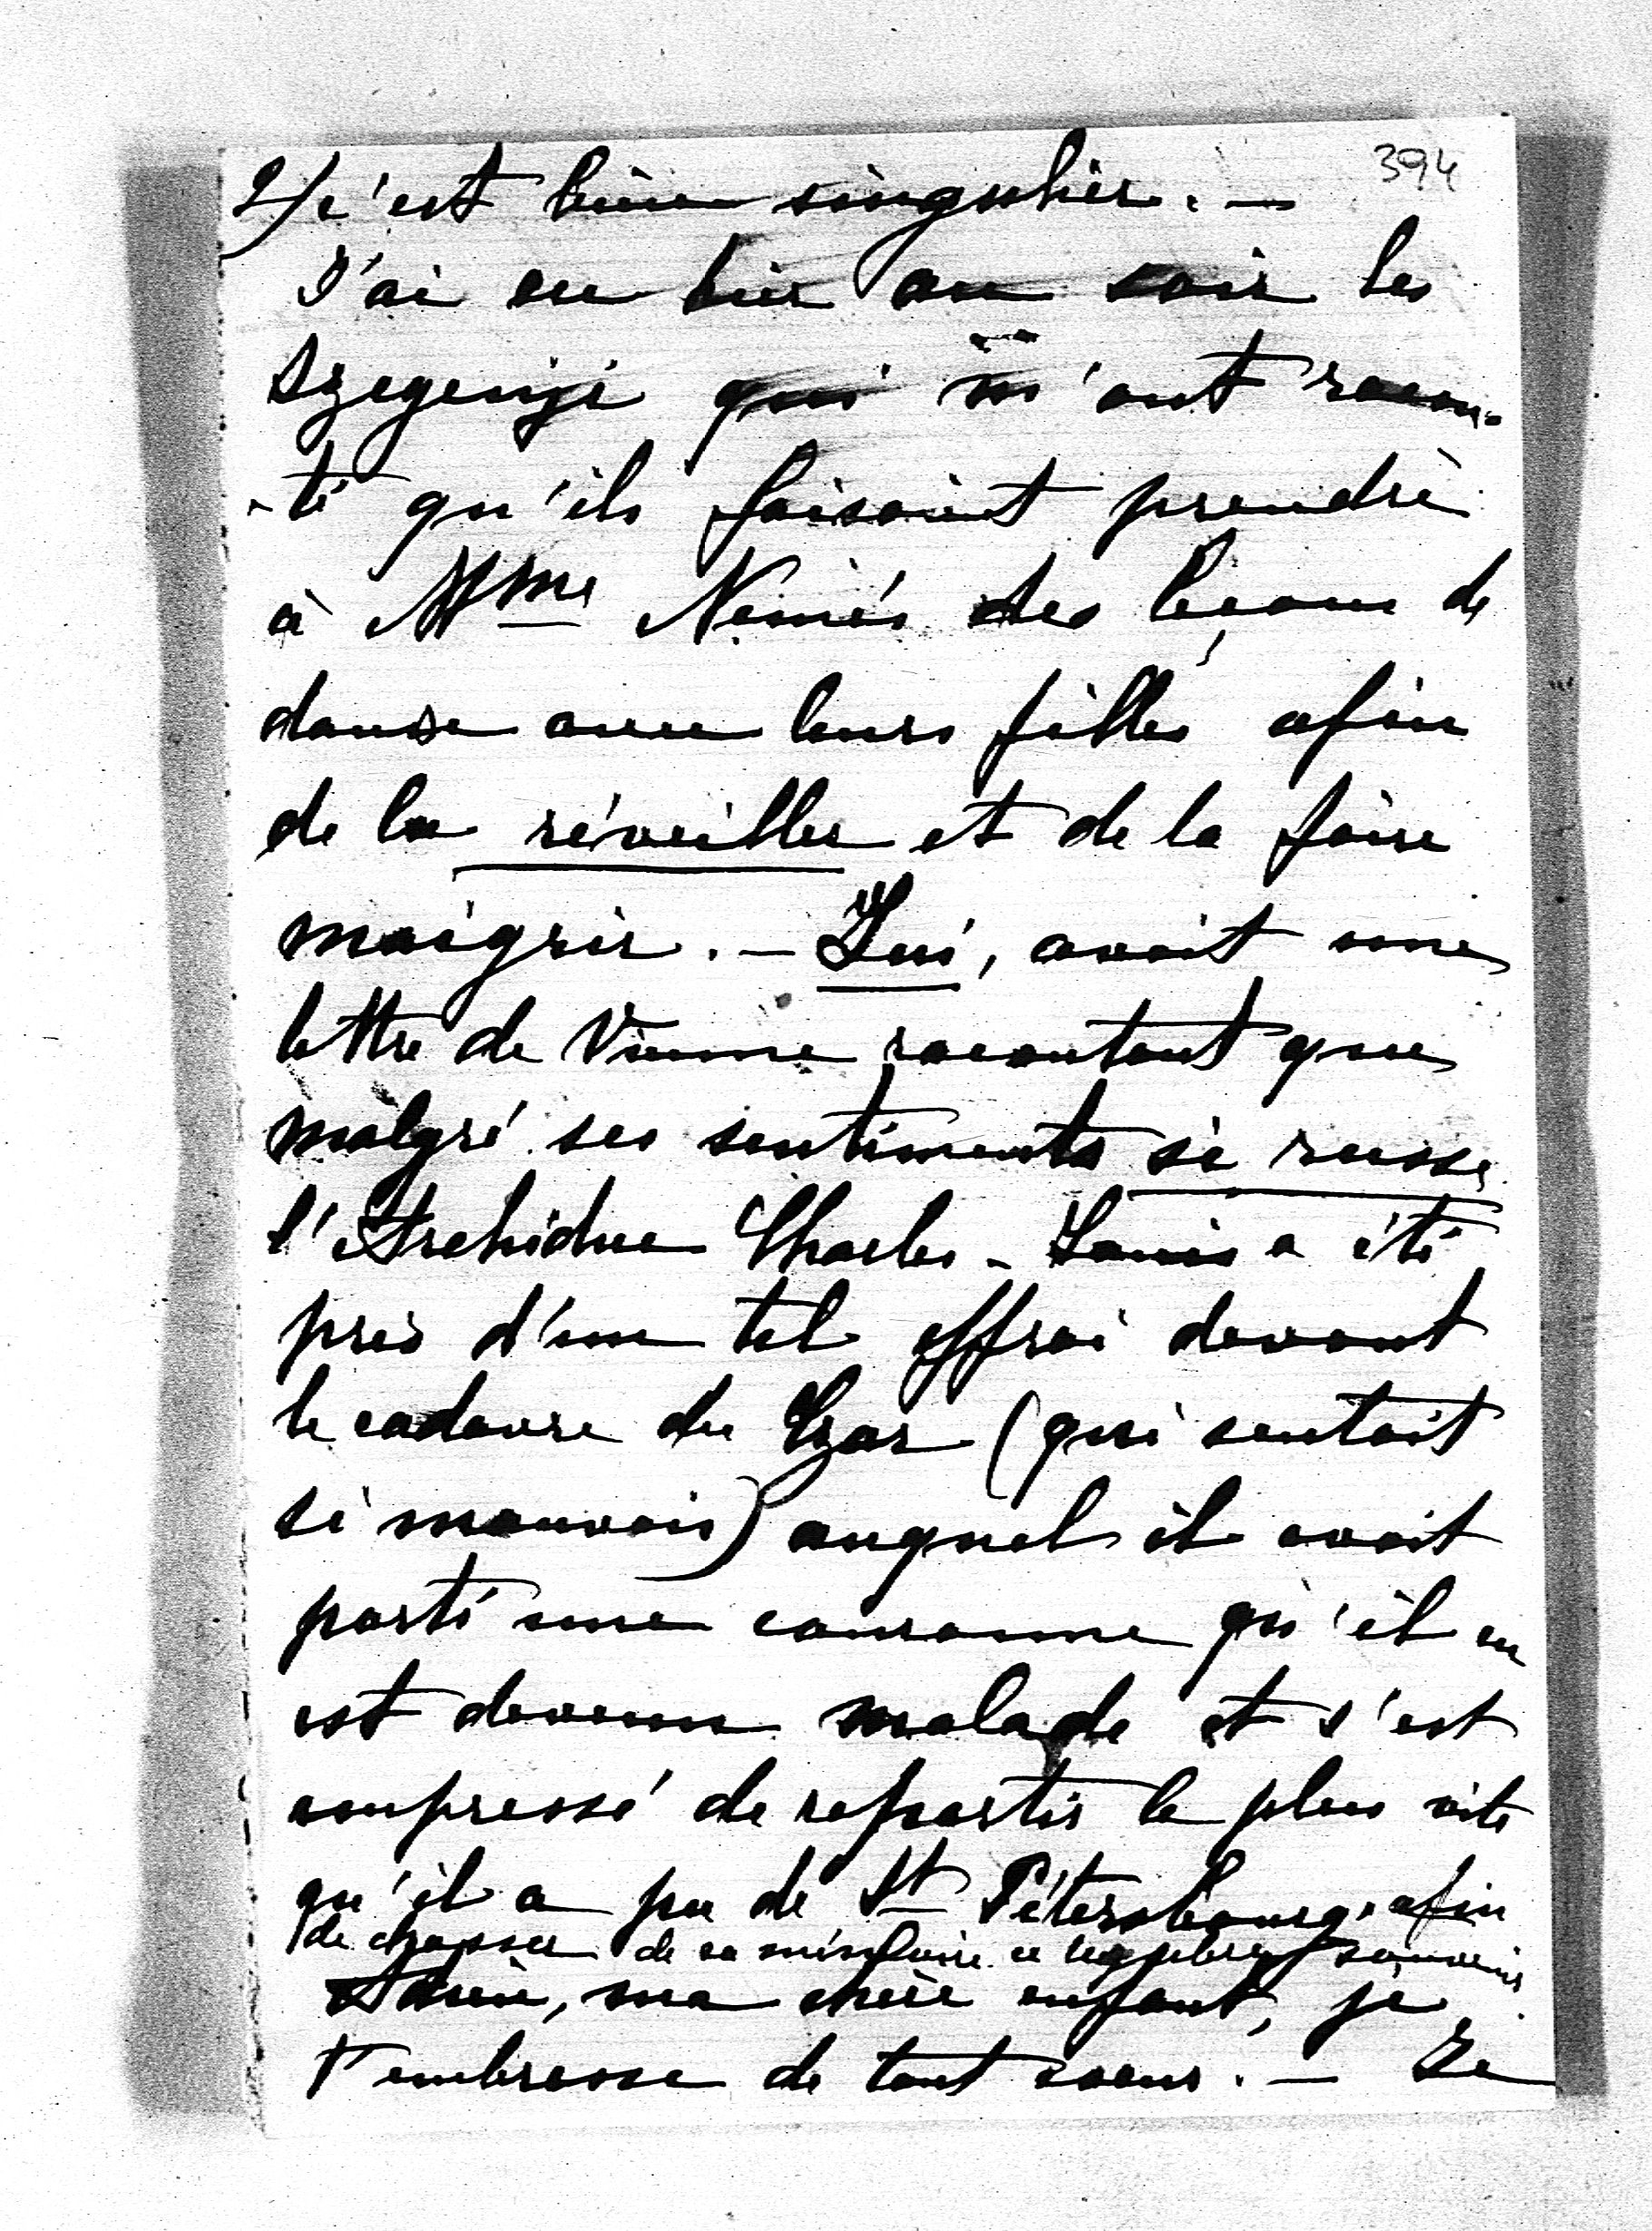 394
2/ c'est bien singulier. —
J'ai eu hier au soir les
Szegenyi qui m'ont racon-
-té qu'ils faisaient prendre
à Mme Nemès des leçons de
danse avec leurs filles afin
de la réveiller et de la faire
maigrir. — Lui, avait une
lettre de Vienne racontant que
malgré ses sentiments si russe
l'Archiduc Charles-Louis a été
pris d'un tel effroi devant
le cadavre du Czar (qui sentait
si mauvais) auquel il avait
porté une couronne qu'il en
est devenu malade et s'est
empressé de repartir le plus vite
qu'il a pu de St Pétersbourg afin
de chasser de sa mémoire ce lugubre souvenir.
Adieu, ma chère enfant, je
t'embrasse de tout coeur. — Le